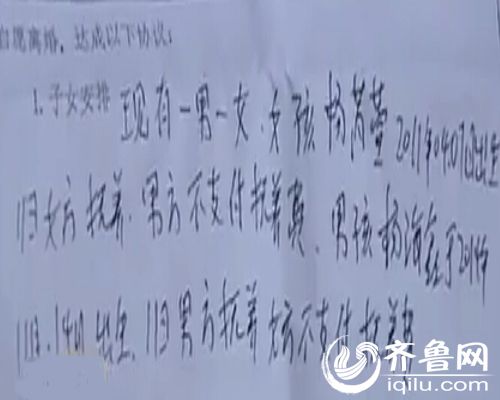 自愿离婚，达成以下协议：
1. 子女安排 现有一男一女.女孩杨芮萱2011年04.07日出生
归女方抚养.男方不支付抚养费.男孩杨海鑫于2014年
11月.14日出生 归男方抚养 女方不支付抚养费
齐鲁网
iqilu.com